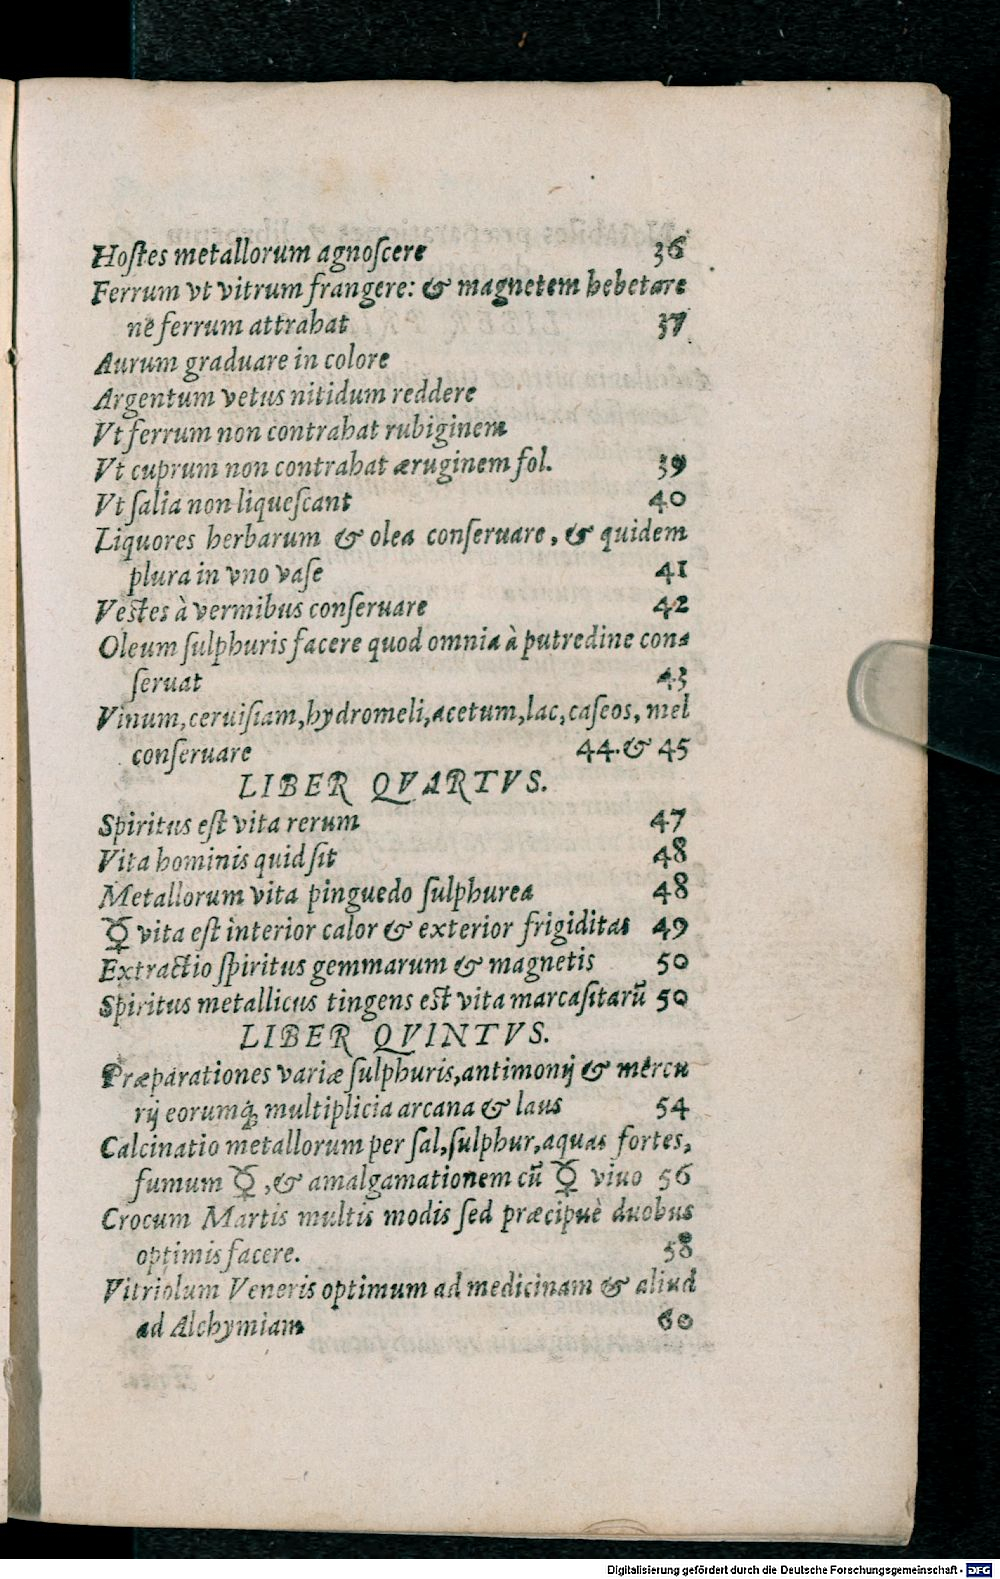 Hoſtes metallorum agnoſcere 36
Ferrum vt vitrum frangere: & magnetem hebetare
ne ferrum attrahat 37
Aurum graduare in colore
Argentum vetus nitidum reddere
Vt ferrum non contrahat rubiginem
Vt cuprum non contrahat æruginem fol. 39
Vt ſalia non liqueſcant 40
Liquores herbarum & olea conſeruare, & quidem
plura in vno vaſe 41
Veſtes à vermibus conſeruare 42
Oleum ſulphuris facere quod omnia à putredine con-
ſeruat 43
Vinum, ceruiſiam, hydromeli, acetum, lac, caſeos, mel
conſeruare 44. & 45
LIBER QVARTVS.
Spiritus eſt vita rerum 47
Vita hominis quid ſit 48
Metallorum vita pinguedo ſulphurea 48
☿ vita eſt interior calor & exterior frigiditas 49
Extractio ſpiritus gemmarum & magnetis 50
Spiritus metallicus tingens eſt vita marcaſitarū 50
LIBER QVINTVS.
Præparationes variæ ſulphuris, antimonij & mercu
rij eorumq́; multiplicia arcana & laus 54
Calcinatio metallorum per ſal, ſulphur, aquas fortes,
fumum ☿, & amalgamationem cū ☿ viuo 56
Crocum Martis multis modis ſed præcipuè duobus
optimis facere. 58
Vitriolum Veneris optimum ad medicinam & aliud
ad Alchymiam 60
Digitalisierung gefördert durch die Deutsche Forschungsgemeinschaft - DFG